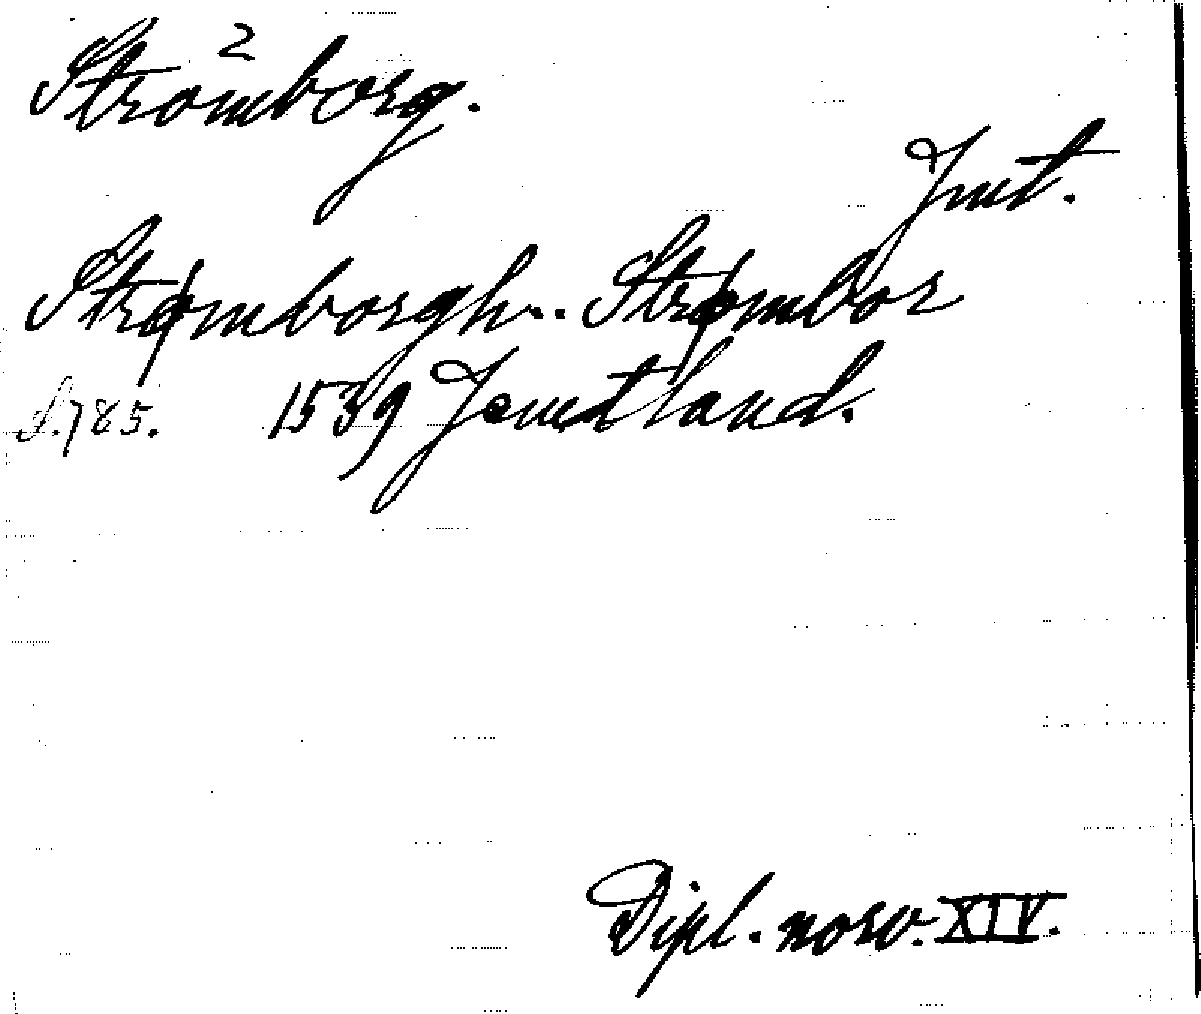 Strömborg.
Jmt.
Strømborgh.. Strømbor
S.785. 1539 Jemtland.
Dipl. norv. XIV.